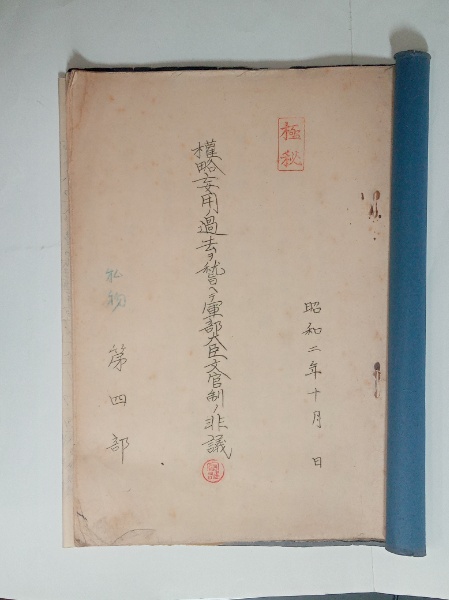 極秘
昭和二年十月 日
権略妄用ノ過去ヲ稽ヘテ軍部大臣文官制ノ非議
第四部
私物